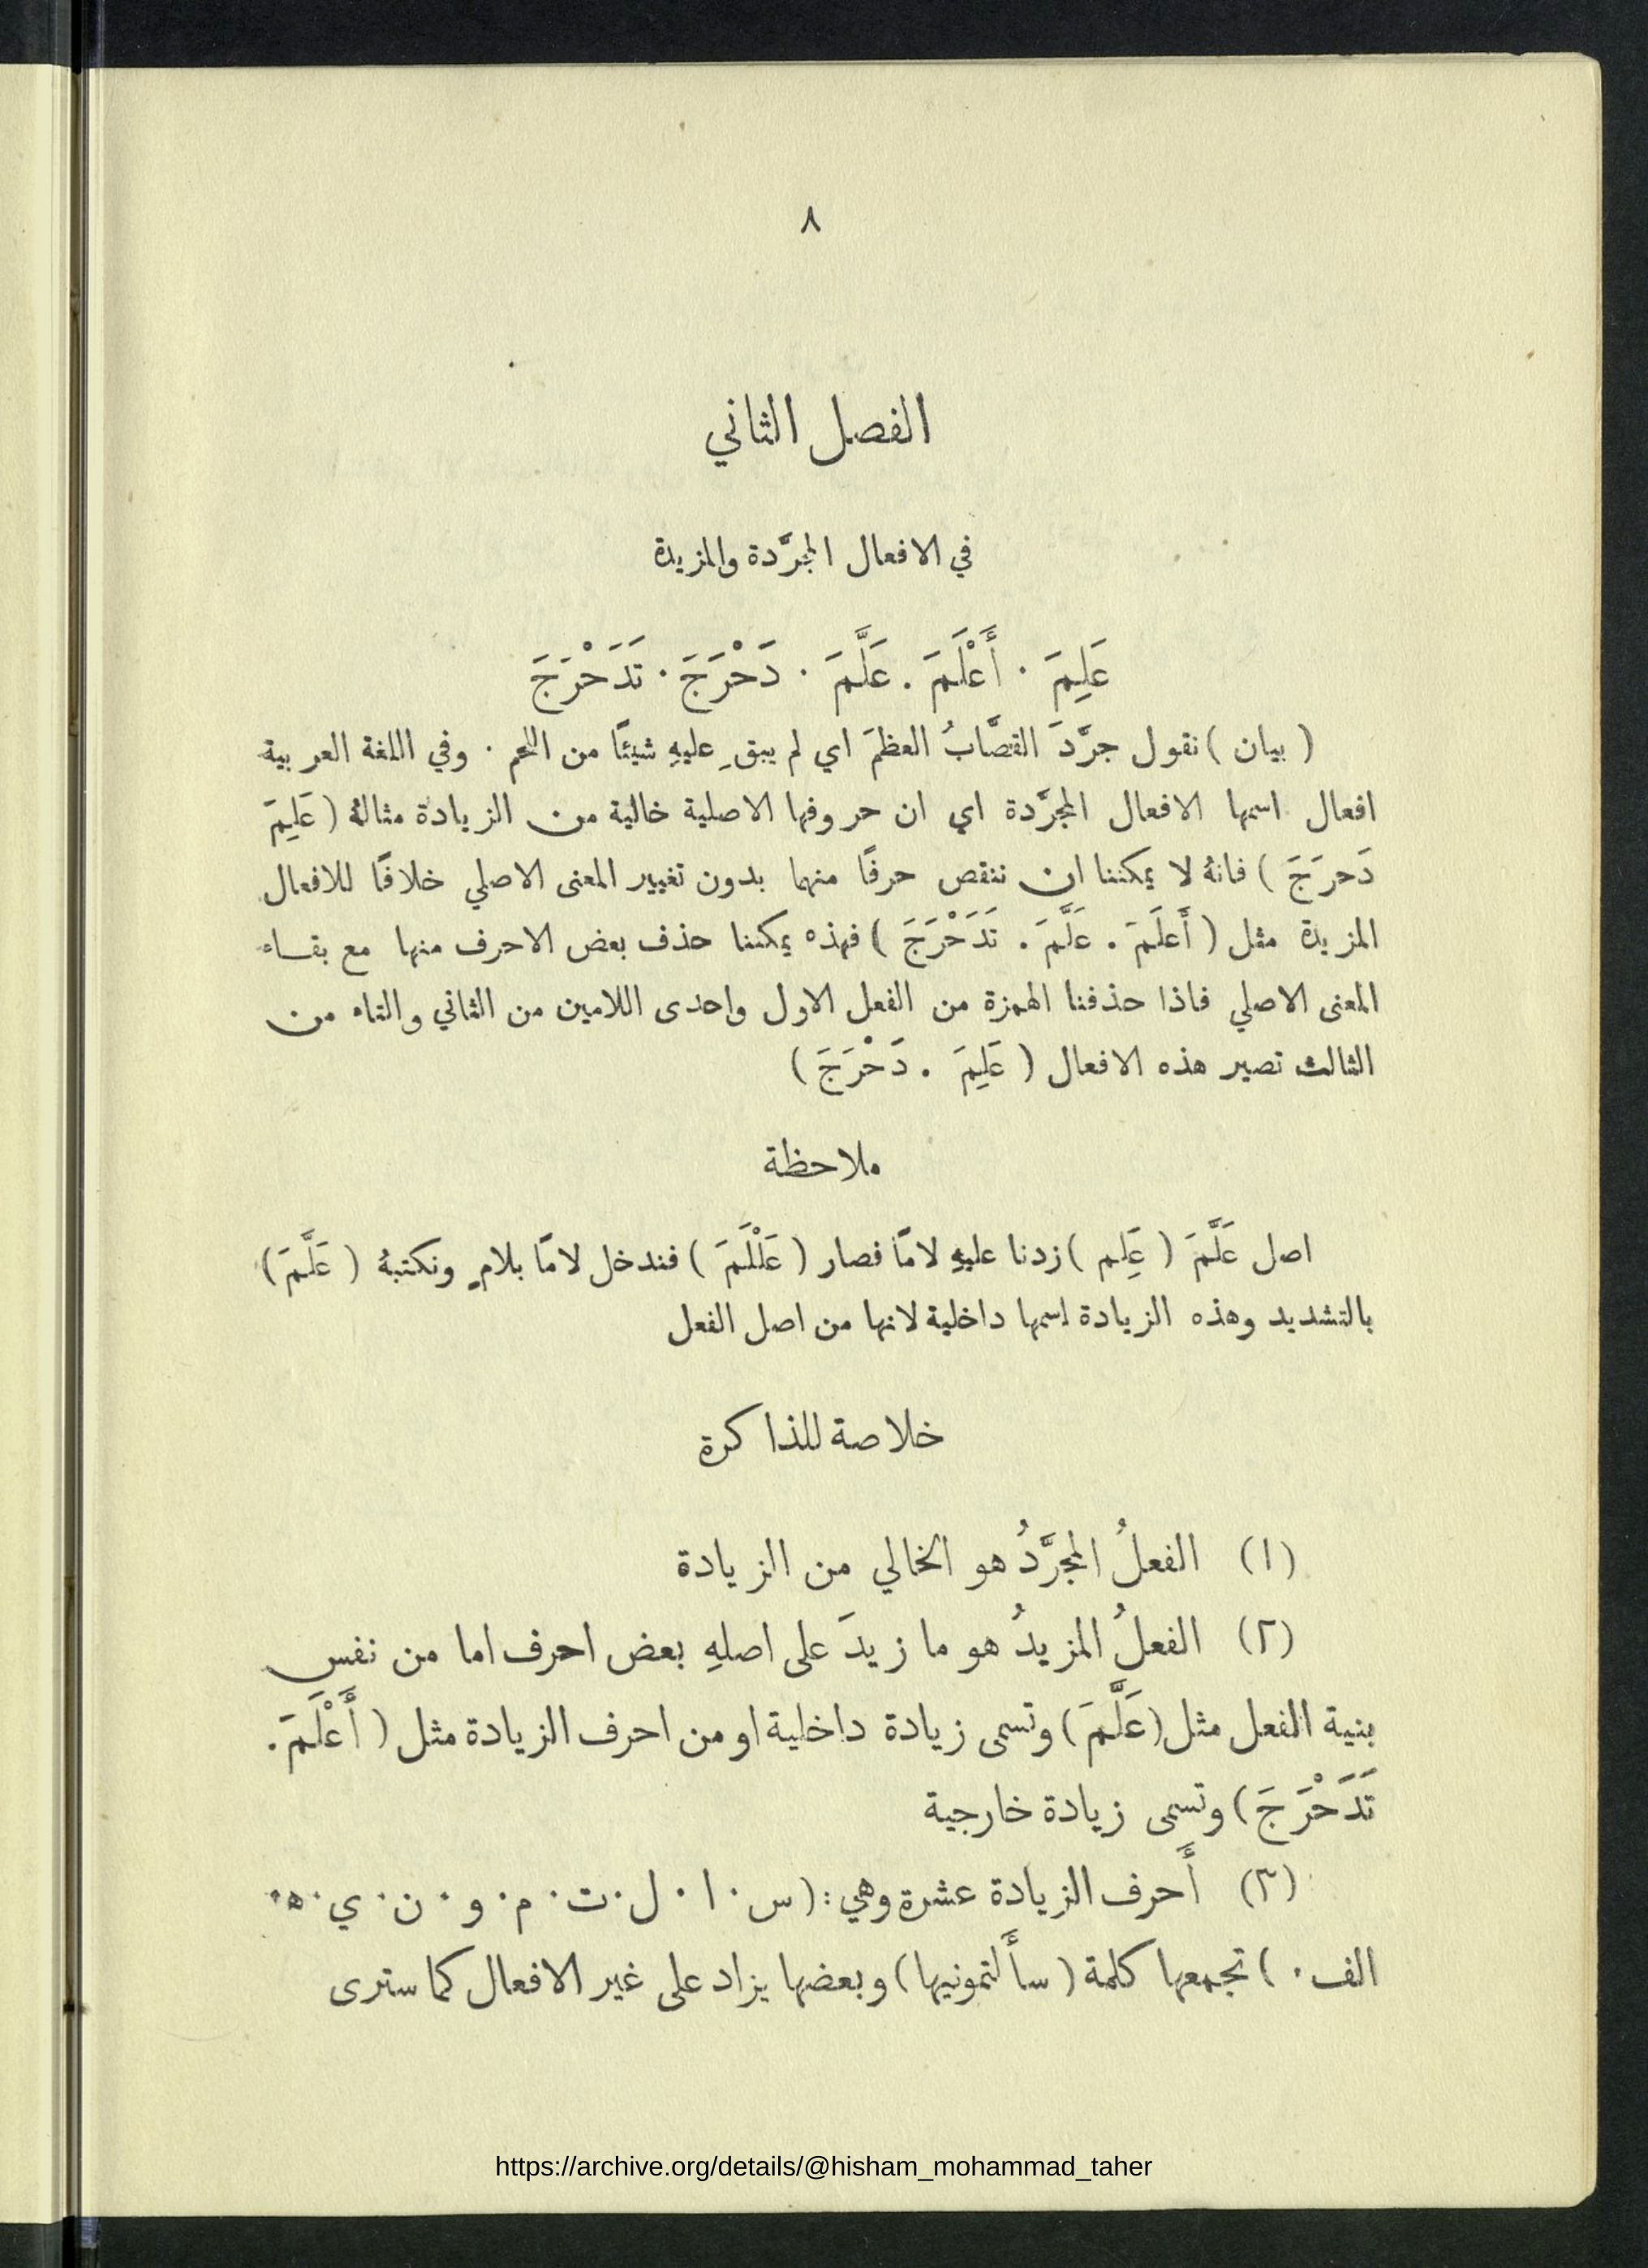 ٨
الفصل الثاني
في الافعال المجرَّدة والمزيدة
عَلِمَ · أَعْلَمَ . عَلَّمَ · دَحْرَجَ · تَدَحْرَجَ
( بيان ) نقول جرَّدَ القصَّابُ العظمَ اي لم يبقِ عليهِ شيئًا من اللحم · وفي اللغة العربية
افعال اسمها الافعال المجرَّدة اي ان حروفها الاصلية خالية من الزيادة مثالهُ ( عَلِمَ
دَحرَجَ ) فانهُ لا يمكننا ان ننقص حرفًا منها بدون تغيير المعنى الاصلي خلافًا للافعال
المزيدة مثل ( أَعلَمَ . عَلَّمَ . تَدَحْرَجَ ) فهذه يمكننا حذف بعض الاحرف منها مع بقاء
المعنى الاصلي فاذا حذفنا الهمزة من الفعل الاول واحدى اللامين من الثاني والتاء من
الثالث تصير هذه الافعال ( عَلِمَ . دَحْرَجَ )
ملاحظة
اصل عَلَّمَ ( عَلِم ) زدنا عليهِ لامًا فصار ( عَلْلَمَ ) فندخل لامًا بلامٍ ونكتبهُ ( عَلَّمَ )
بالتشديد وهذه الزيادة اسمها داخلية لانها من اصل الفعل
خلاصة للذاكرة
(١) الفعلُ المجرَّدُ هو الخالي من الزيادة
(٢) الفعلُ المزيدُ هو ما زيدَ على اصلهِ بعض احرف اما من نفس
بنية الفعل مثل (عَلَّمَ) وتسمى زيادة داخلية او من احرف الزيادة مثل ( أَعْلَمَ .
تَدَحْرَجَ ) وتسمى زيادة خارجية
(٣) أَحرف الزيادة عشرة وهي : ( س · ا · ل · ت · م · و · ن · ي · ه ·
الف · ) تجمعها كلمة ( سأَلتمونيها ) وبعضها يزاد على غير الافعال كما سترى
https://archive.org/details/@hisham_mohammad_taher